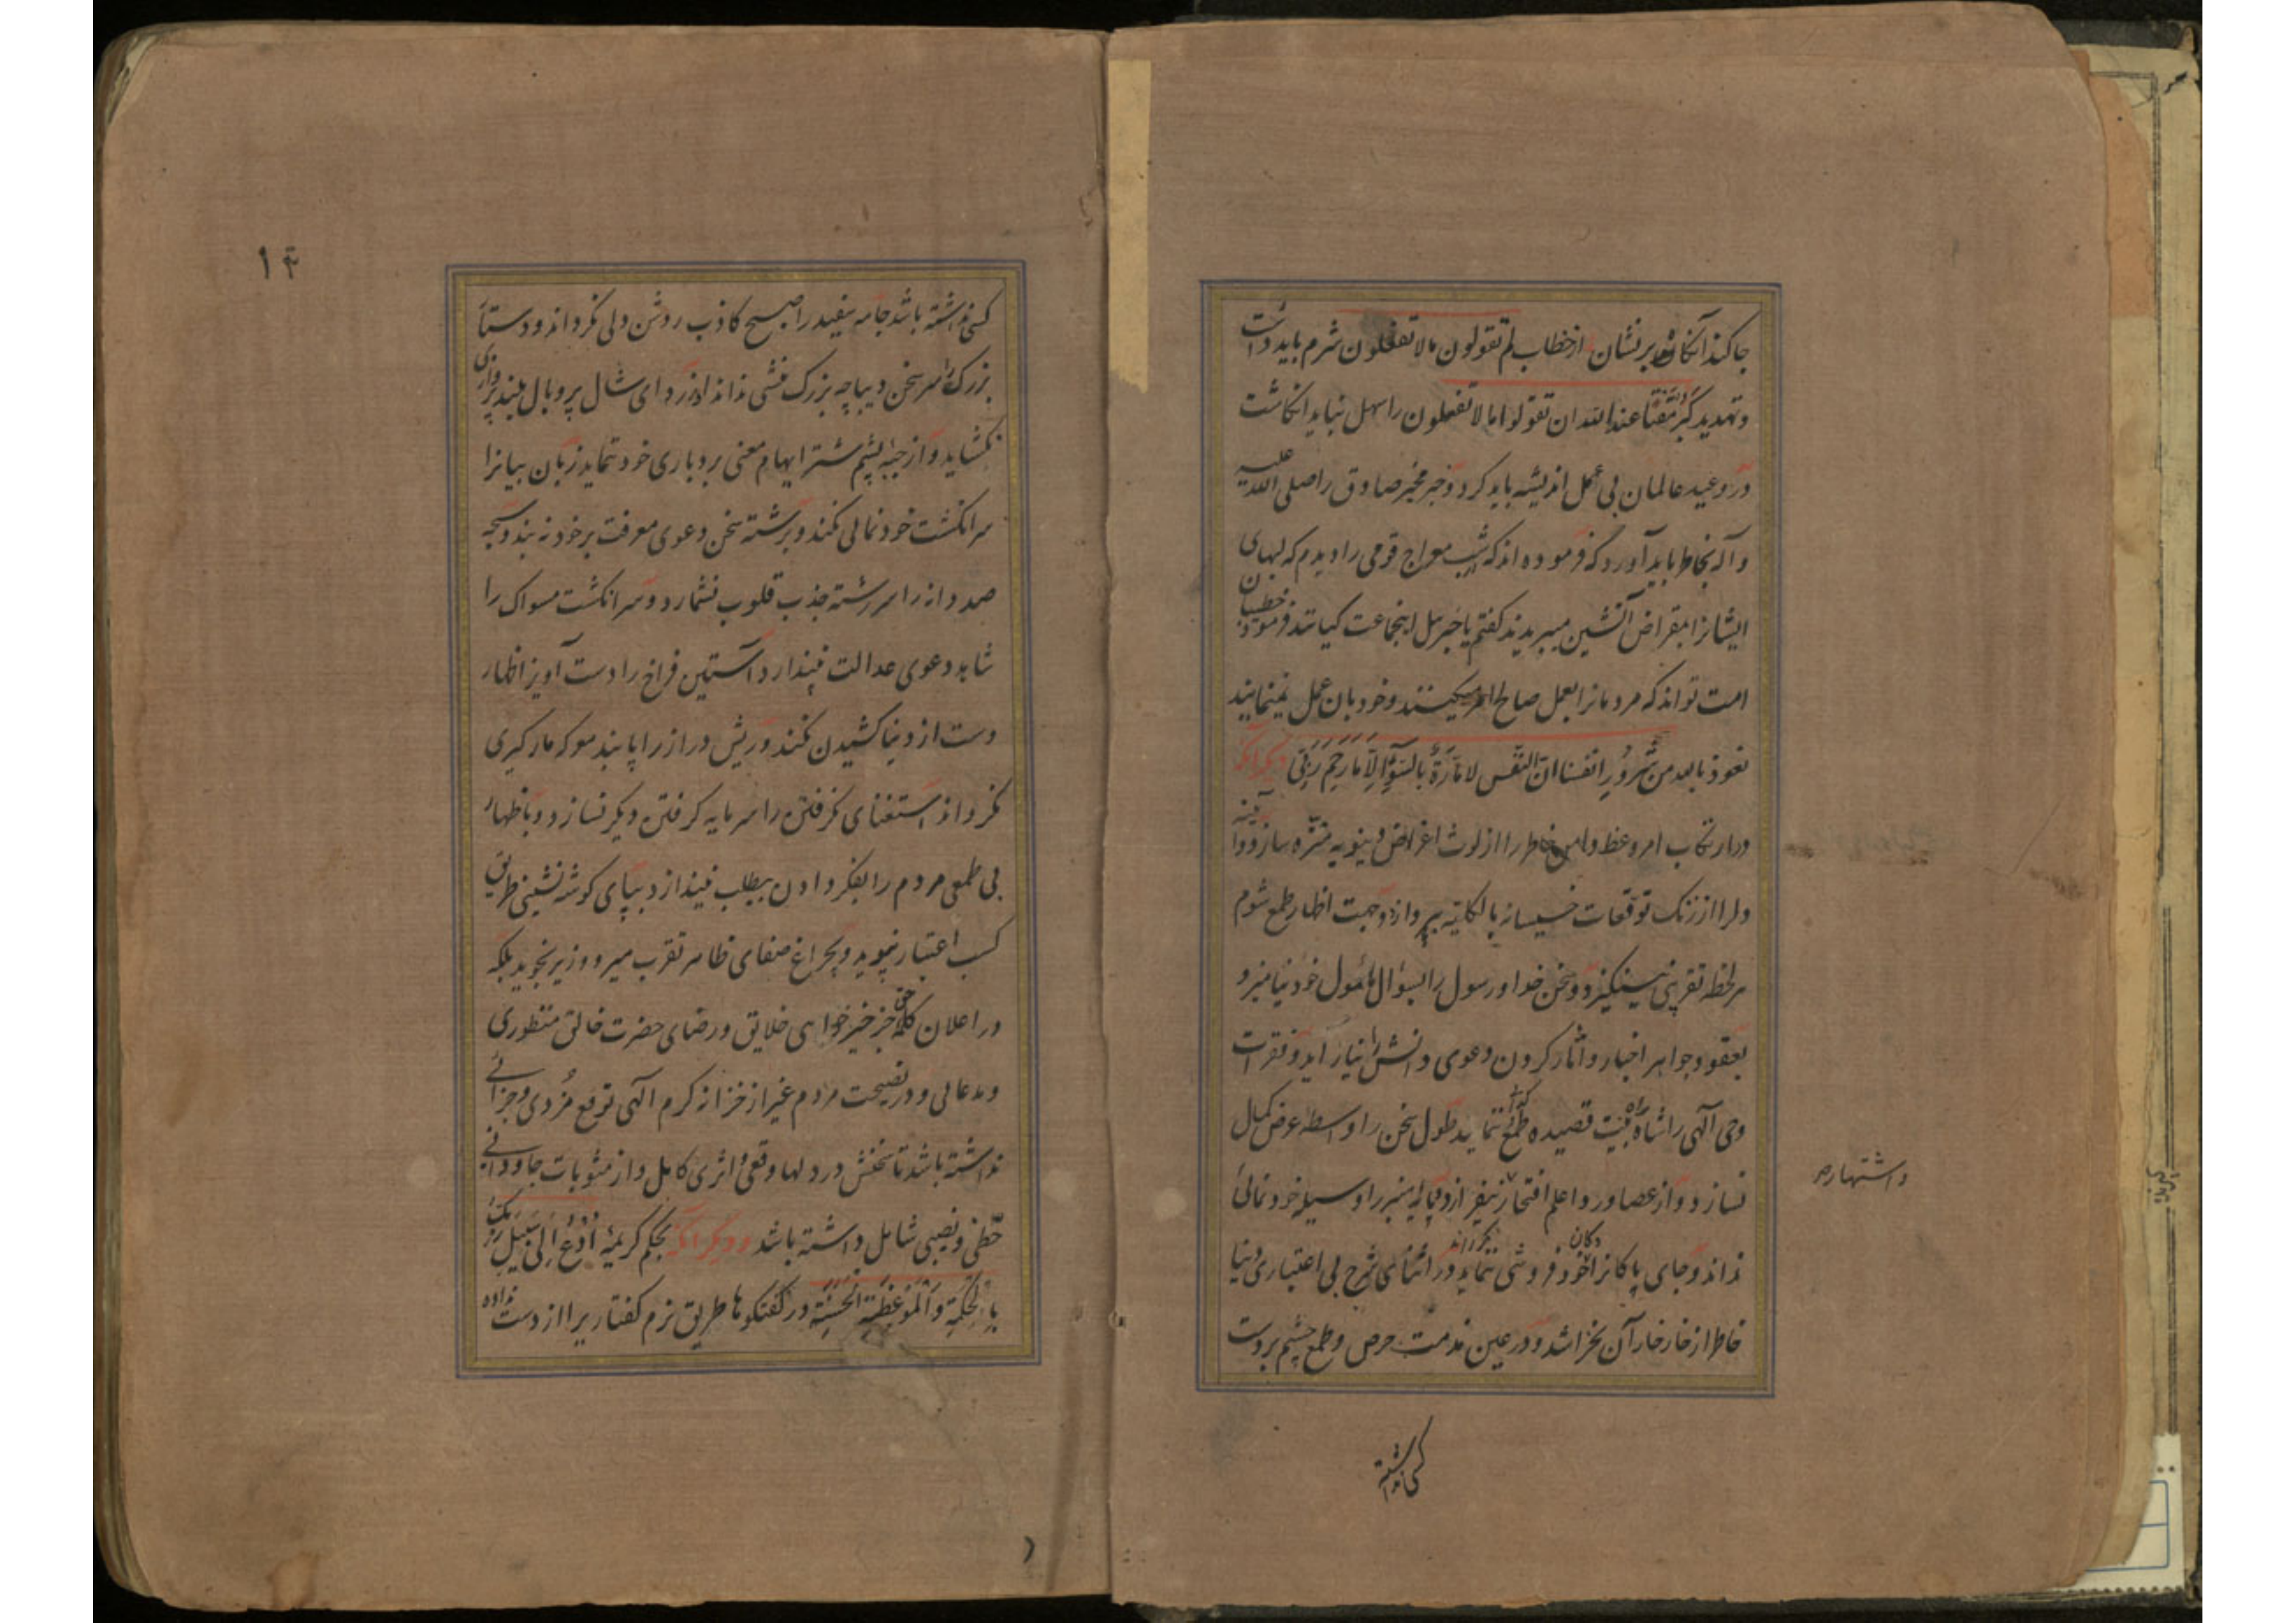 جا کند آنکاه بر نشان از خطاب لم تقولون مالا تفعلون شرم باید داشت
و تهدید کبر مقتا عند الله ان تقولوا مالا تفعلون را سهل نباید انکاشت
و از وعید عالمان بی عمل اندیشه باید کرد و خبر مخبر صادق را صلی الله علیه
و آله بخاطر باید آورد که فرموده اند که شب معراج قومی را دیدم که لبهای
ایشانرا بمقراض آتشین میبریدند کفتم یا جبرییل اینجماعت کیانند فرمود خطیبان
امت تواند که مردمانرا بعمل صالح امر میکنند و خود بان عمل نمینمایند
نعوذ بالله من شرور انفسنا ان النفس لامارة بالسوء الا ما رحم ربی دیکر آنکه
در ارتکاب امر وعظ دامن خاطر را از لوث اغراض دنیویه منزه سازد و آینه
دلرا از زنک توقعات خسیسانه بالکلیه بپردازد و جهت اظهار طمع شوم
هر لحظه تقریبی نینکیزد و سخن خدا و رسول را بسؤال مأمول خود نیامیزد و
بعقود جواهر اخبار و آثار کردن دعوی دانش نیاراید و فقرات
وحی آلهی را شاه بیت قصیده طمع نماید طول سخن را واسطه عرض کمال
نسازد و از عصا و ردا علم افتخار نیفرازد و پایه منبر را وسیله خودنمائی
نداند و جای پاکانرا دکان خود فروشی ننماید و در اثنای شرح بی اعتباری دنیا
خاطر از خار خار آن نخراشد و در عین مذمت حرص و طمع چشم بر دست
و اشتهار
کسی نداشته
۱۴
کسی نداشته باشد جامه سفید را صبح کاذب روشن دلی نکرداند و دستار
بزرک را سر سخن دیباچه بزرک منشی نداند از ردای شال پر و بال بلند پروازی
نکشاید و از جبه پشم شتر ایهام معنی بردباری خود ننماید زبان بیانرا
سر انکشت خودنمائی نکند و برشته سخن دعوی معرفت بر خود نه بندد سبحه
صد دانه را سر رشته جذب قلوب نشمارد و سر انکشت مسواک را
شاهد دعوی عدالت نپندارد آستین فراخ را دست آویز اظهار
دست از دنیا کشیدن نکند و ریش دراز را پابند معرکه مارکیری
نکرداند استغنای نکرفتن را سرمایه کرفتن دیکر نسازد و باظهار
بی طمعی مردم را بفکر دادن بیطلب نیندازد بپای کوشه نشینی طریق
کسب اعتبار نپوید و بچراغ صفای ظاهر تقرب میر و وزیر نجوید بلکه
در اعلان کلمه حق جز خیرخواهی خلایق و رضای حضرت خالق منظوری
و مدعائی و در نصیحت مردم غیر از خزانه کرم آلهی توقع مزدی و جزائے
نداشته باشد تا سخنش در دلها وقعی و اثری کامل و از مثوبات جاودانے
حظی و نصیبی شامل داشته باشد و دیکر آنکه بحکم کریمه ادع الی سبیل ربک
بالحکمة و الموعظة الحسنة در کفتکوها طریق نرم کفتاریرا از دست نداده